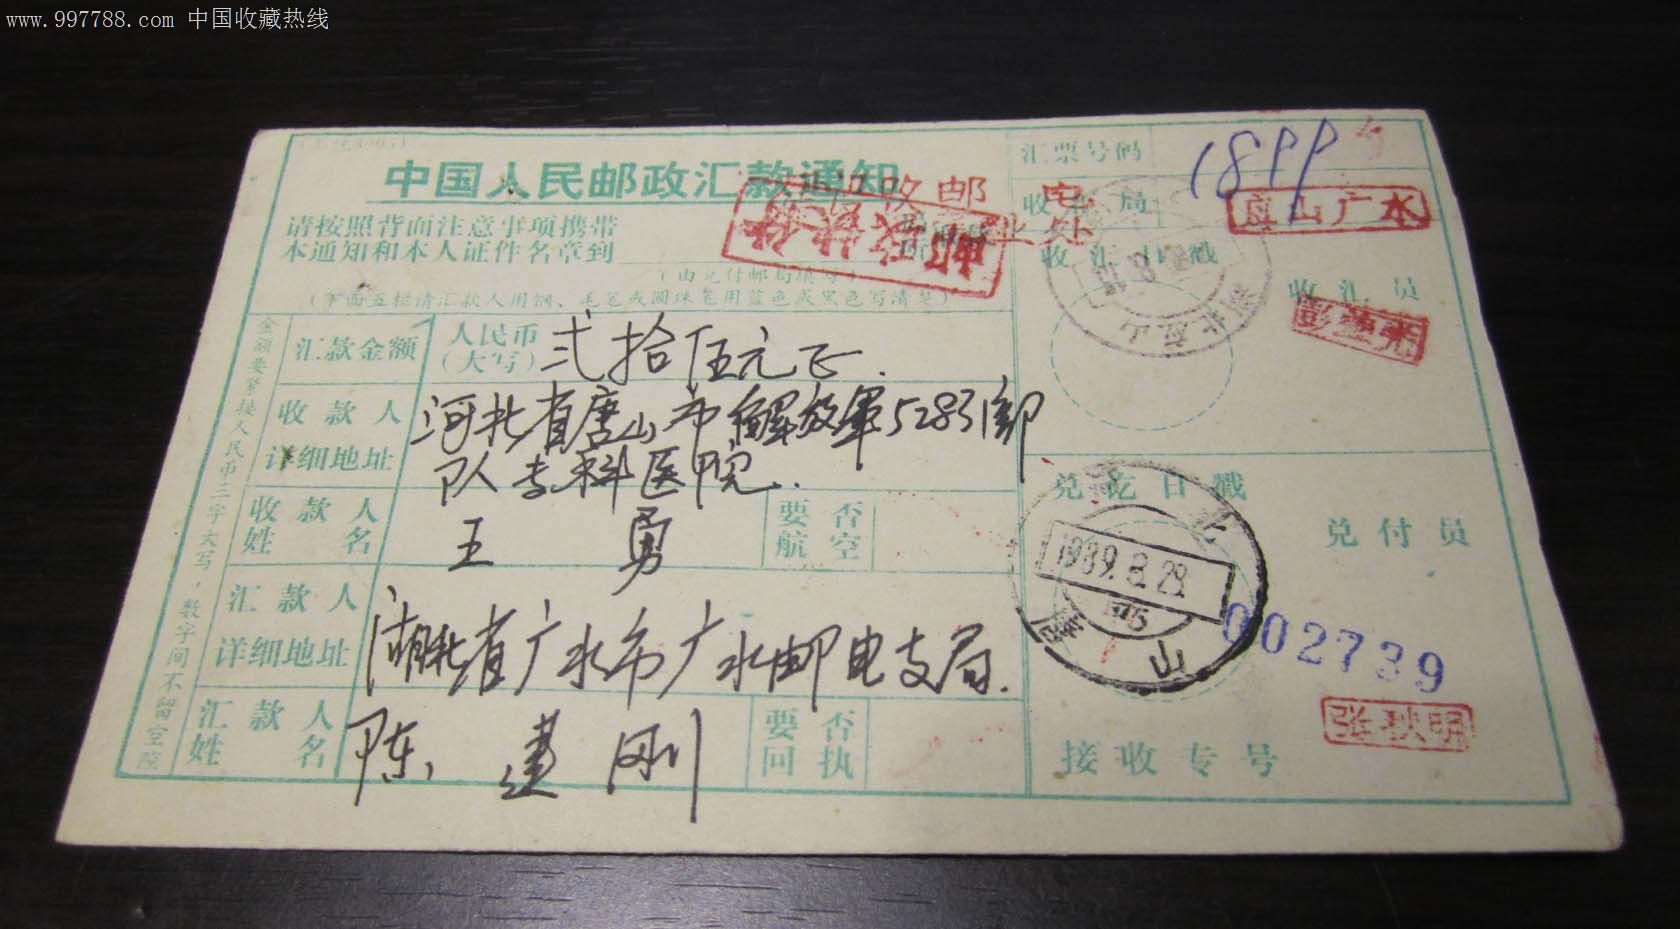 www.997788.com 中国收藏热线
中国人民邮政汇款通知
请按照背面注意事项携带
本通知和本人证件名章到
(由兑付邮局填写)
(下面五栏请汇款人用钢、毛笔或圆珠笔用蓝色或黑色写清楚)
金额要紧接人民币二字大写,数字间不留空隙
汇款金额 人民币(大写) 弍拾伍元正.
收款人详细地址 河北省唐山市解放军52831部
队专科医院.
收款人姓名 王勇 要否航空
汇款人详细地址 湖北省广水市广水邮电支局.
汇款人姓名 陈建刚 要否回执
汇票号码 1899
收汇局 应山广水
收汇日戳
收汇员
湖北应山
兑讫日戳
兑付员
河北
1989.8.29
唐山
002739
张秋明
接收专号